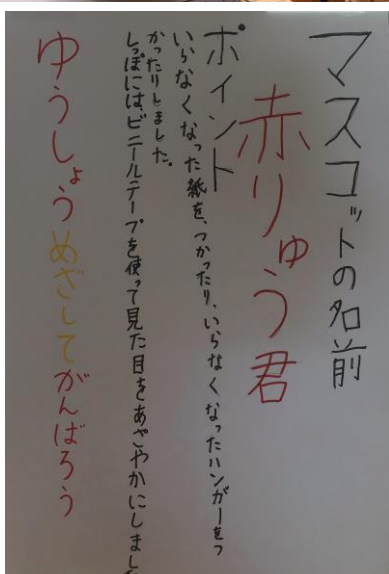 マスコットの名前
赤りゅう君
ポイント
いらなくなった紙を、つかったり、いらなくなったハンガーをつ
かったりしました。
しっぽには、ビニールテープを使って見た目をあざやかにしました
ゆうしょうめざしてがんばろう